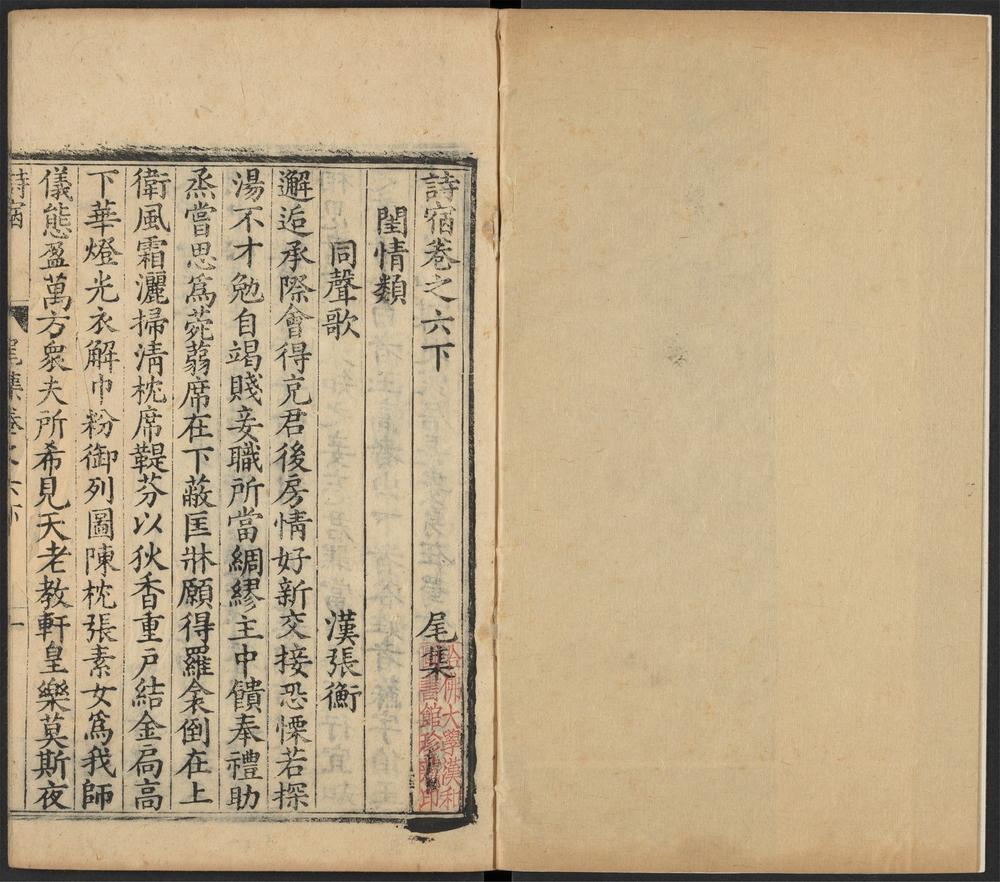 詩宿卷之六下 尾集
閨情類
同聲歌 漢張衡
邂逅承際會得充君後房情好新交接恐慄若探
湯不才勉自竭賤妾職所當綢繆主中饋奉禮助
烝嘗思爲菀蒻席在下蔽匡牀願得羅衾倒在上
衛風霜灑掃淸枕席鞮芬以狄香重戶結金扃高
下華燈光衣解巾粉御列圖陳枕張素女爲我師
儀態盈萬方衆夫所希見天老教軒皇樂莫斯夜
詩宿 尾集卷之六下 一
哈佛大學漢和
圖書館珍藏印